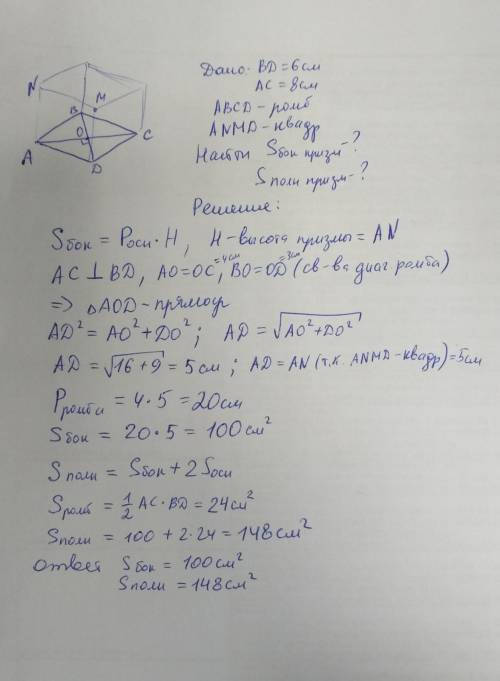 Дано: BD = 6 см
AC = 8 см
ABCD - ромб
ANMD - квадр
Найти Sбок призм - ?
Sполн призм - ?
N
M
B
O
C
A
D
Решение:
Sбок = Pосн · H, H - высота призмы = AN
AC ⊥ BD, AO = OC = 4см, BO = OD = 3см (св-ва диаг ромба)
=> △AOD - прямоуг
AD² = AO² + DO²; AD = √AO² + DO²
AD = √16 + 9 = 5 см; AD = AN (т.к. ANMD - квадр) = 5 см
Pромба = 4 · 5 = 20 см
Sбок = 20 · 5 = 100 см²
Sполн = Sбок + 2 Sосн
Sромб = 1/2 AC · BD = 24 см²
Sполн = 100 + 2 · 24 = 148 см²
Ответ Sбок = 100 см²
Sполн = 148 см²